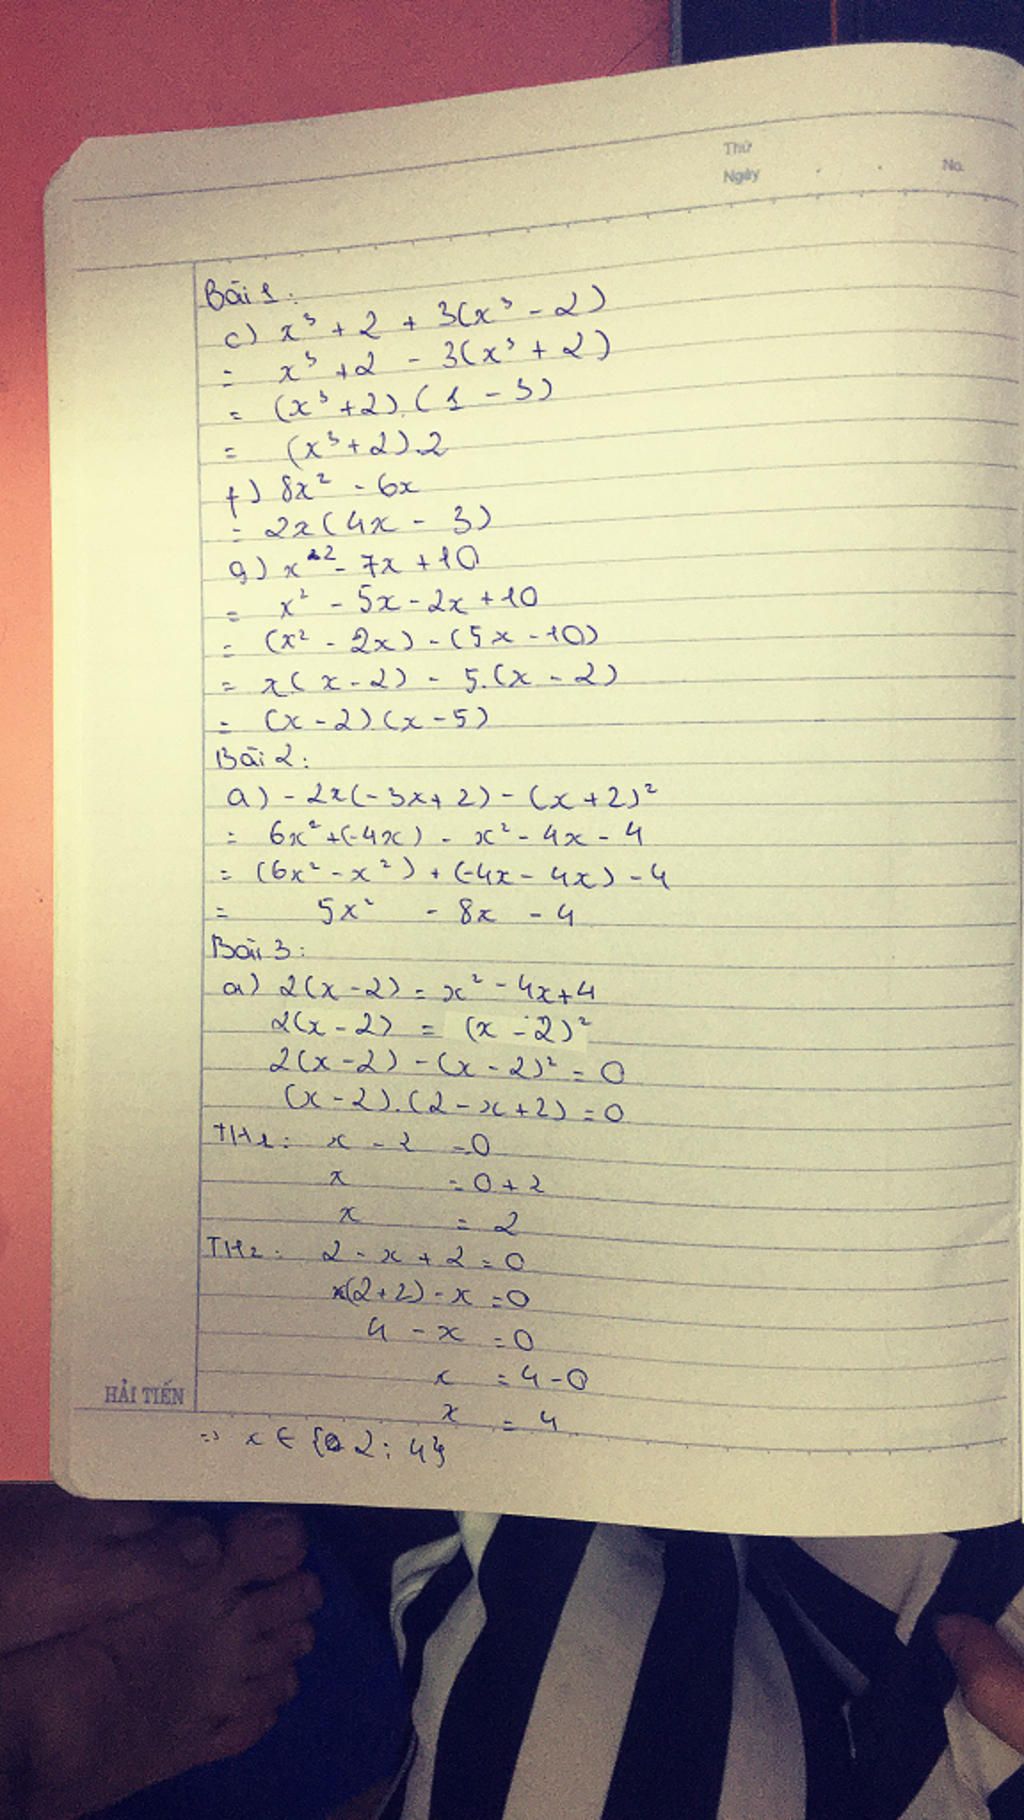 Thứ
Ngày
No.
Bài 1:
c) x³ + 2 + 3(x³ - 2)
= x³ + 2 - 3(x³ + 2)
= (x³ + 2).(1 - 3)
= (x³ + 2).2
f) 8x² - 6x
= 2x(4x - 3)
g) x² - 7x + 10
= x² - 5x - 2x + 10
= (x² - 2x) - (5x - 10)
= x(x - 2) - 5.(x - 2)
= (x - 2)(x - 5)
Bài 2:
a) -2x(-3x + 2) - (x + 2)²
= 6x² + (-4x) - x² - 4x - 4
= (6x² - x²) + (-4x - 4x) - 4
= 5x² - 8x - 4
Bài 3:
a) 2(x - 2) = x² - 4x + 4
2(x - 2) = (x - 2)²
2(x - 2) - (x - 2)² = 0
(x - 2).(2 - x + 2) = 0
TH1: x - 2 = 0
x = 0 + 2
x = 2
TH2: 2 - x + 2 = 0
(2 + 2) - x = 0
4 - x = 0
x = 4 - 0
x = 4
=> x ∈ {2; 4}
HẢI TIẾN